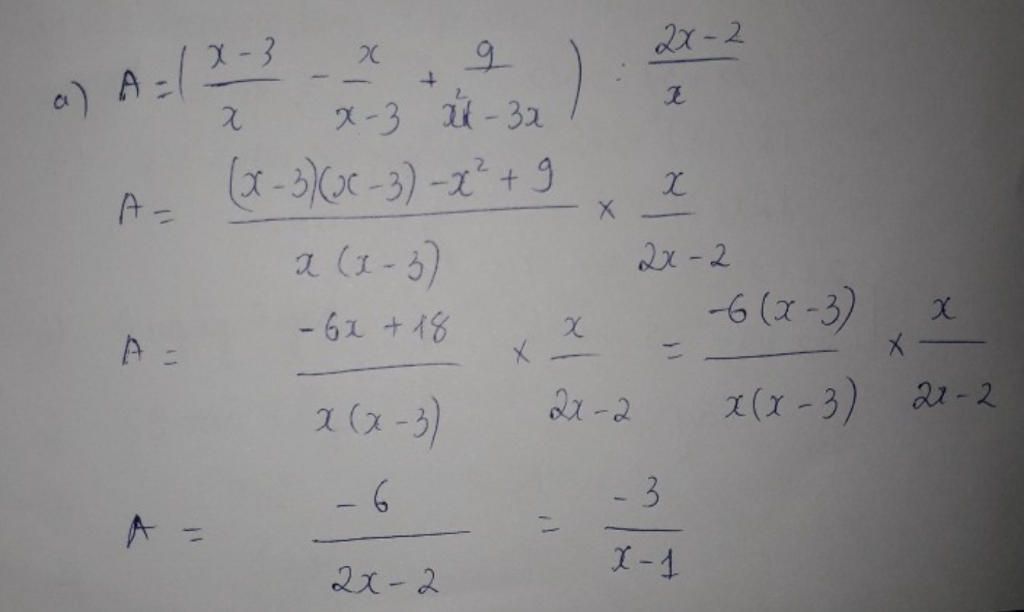 a) A = ( \frac{x-3}{x} - \frac{x}{x-3} + \frac{9}{x^2-3x} ) : \frac{2x-2}{x}
A = \frac{(x-3)(x-3)-x^2+9}{x(x-3)} × \frac{x}{2x-2}
A = \frac{-6x+18}{x(x-3)} × \frac{x}{2x-2} = \frac{-6(x-3)}{x(x-3)} × \frac{x}{2x-2}
A = \frac{-6}{2x-2} = \frac{-3}{x-1}